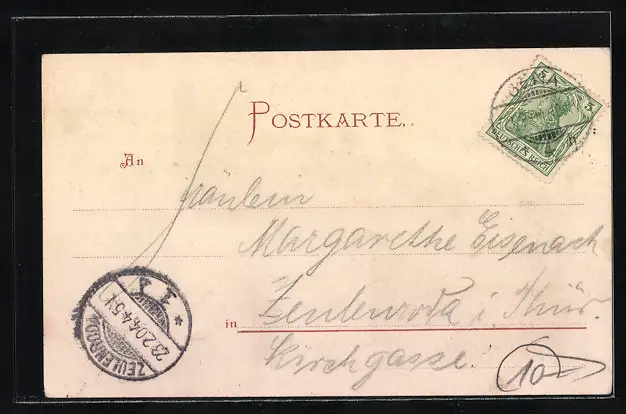 POSTKARTE.
5 5
DEUTSCHES REICH
An
Fräulein
Margarethe Eisenach
in Zeulenroda i. Thür.
Kirchgasse.
ZEULENRODA
23.2.04. 4-5 N.
10